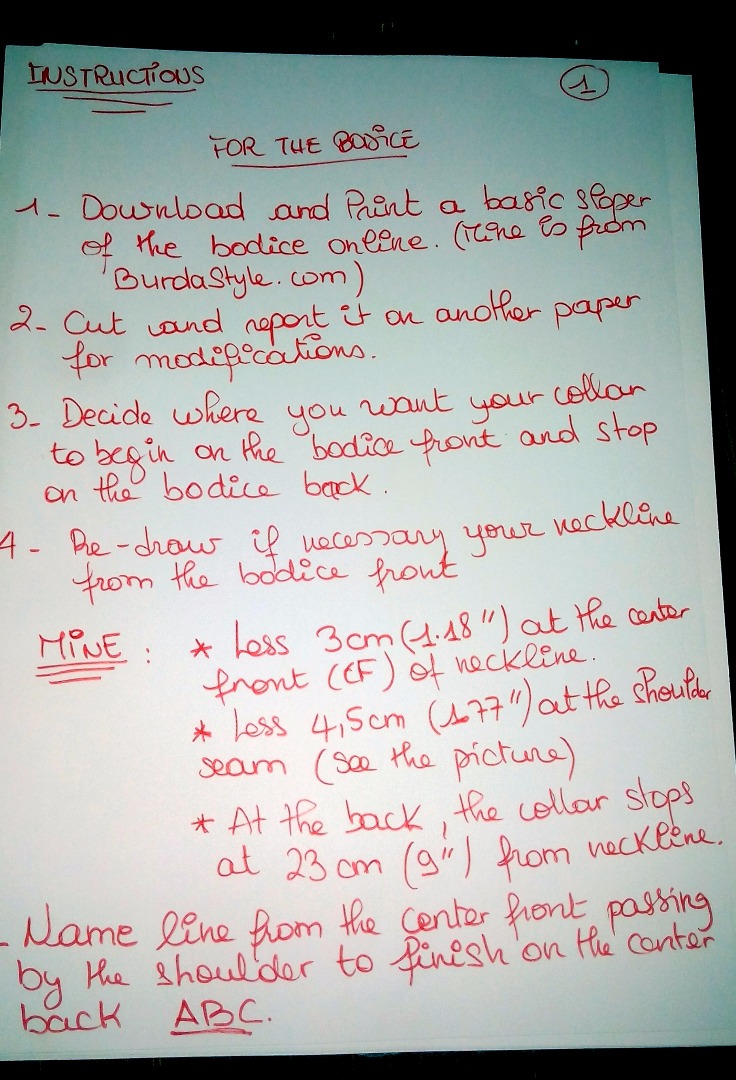 INSTRUCTIONS
1
FOR THE BODICE
1- Download and Print a basic sloper
of the bodice online. (Mine is from
BurdaStyle.com)
2- Cut and report it on another paper
for modifications.
3- Decide where you want your collar
to begin on the bodice front and stop
on the bodice back.
4- Re-draw if necessary your neckline
from the bodice front
MINE : * Less 3cm (1.18") at the center
front (CF) of neckline.
* Less 4,5cm (1.77") at the shoulder
seam (see the picture)
* At the back, the collar stops
at 23 cm (9") from neckline.
- Name line from the center front passing
by the shoulder to finish on the center
back ABC.